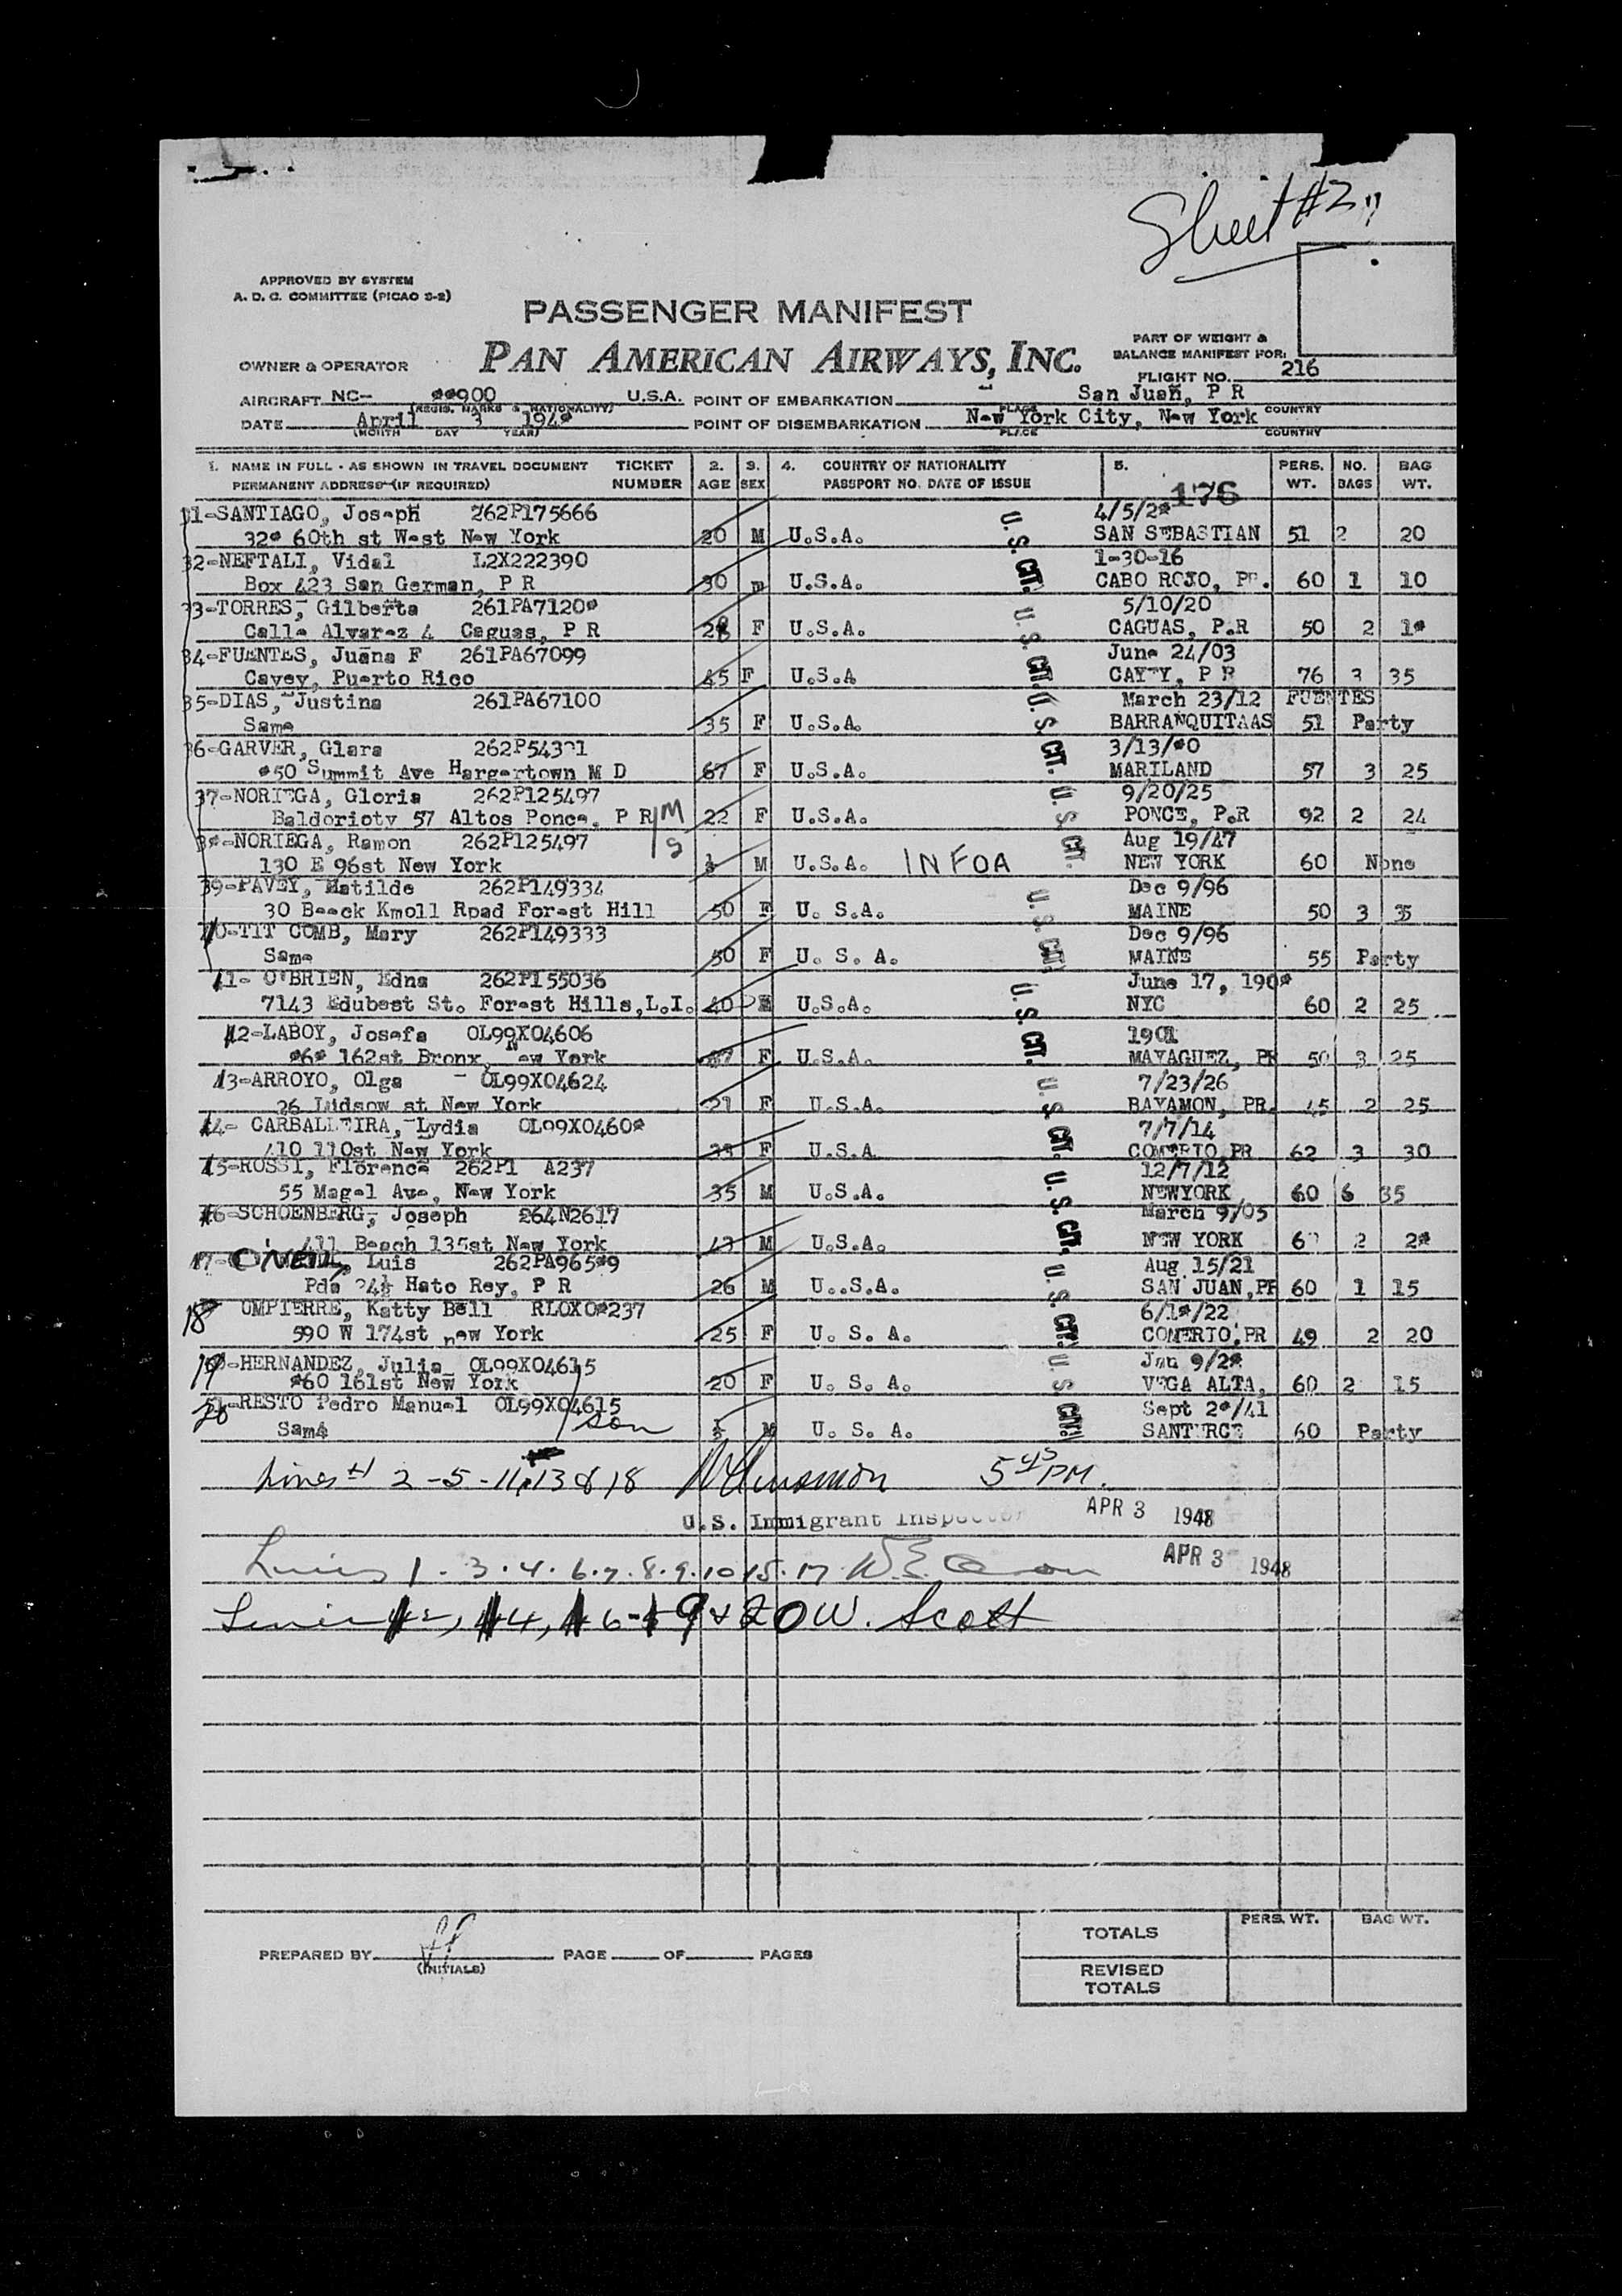 Sheet #2
APPROVED BY SYSTEM
A. D. C. COMMITTEE (PICAO 2-2)
PASSENGER MANIFEST
PART OF WEIGHT &
OWNER & OPERATOR PAN AMERICAN AIRWAYS, INC. BALANCE MANIFEST FOR:
FLIGHT NO. 216
AIRCRAFT NC- **900 U.S.A. POINT OF EMBARKATION San Juan, P R
(REGIS. MARKS & NATIONALITY) PLACE COUNTRY
DATE April 3 194* POINT OF DISEMBARKATION New York City, New York
(MONTH DAY YEAR) PLACE COUNTRY
1. NAME IN FULL - AS SHOWN IN TRAVEL DOCUMENT TICKET 2. 3. 4. COUNTRY OF NATIONALITY 5. PERS. NO. BAG
PERMANENT ADDRESS (IF REQUIRED) NUMBER AGE SEX PASSPORT NO. DATE OF ISSUE WT. BAGS WT.
176
31-SANTIAGO, Joseph 262P175666 4/5/2*
32* 60th st West New York 20 M U.S.A. SAN SEBASTIAN 51 2 20
32-NEFTALI, Vidal L2X222390 1-30-16
Box 423 San German, P R 30 m U.S.A. CABO ROJO, PR. 60 1 10
33-TORRES, Gilberta 261PA7120* 5/10/20
Calle Alvarez 4 Caguas, P R 28 F U.S.A. CAGUAS, P.R 50 2 1*
34-FUENTES, Juana F 261PA67099 June 24/03
Cayey, Puerto Rico 45 F U.S.A CAYEY, P R 76 3 35
35-DIAS, Justina 261PA67100 March 23/12 FUENTES
Same 35 F U.S.A. BARRANQUITAAS 51 Party
36-GARVER, Glara 262P54321 3/13/*0
*50 Summit Ave Hargertown M D 67 F U.S.A. MARILAND 57 3 25
37-NORIEGA, Gloria 262P125497 9/20/25
Baldorioty 57 Altos Ponce, P R M 22 F U.S.A. PONCE, P.R 92 2 24
3*-NORIEGA, Ramon 262P125497 S Aug 19/47
130 E 96st New York ½ M U.S.A. INFOA NEW YORK 60 None
39-PAVEY, Matilde 262P149334 Dec 9/96
30 Beeck Kmoll Rpad Forest Hill 50 F U. S.A. MAINE 50 3 35
40-TIT COMB, Mary 262P149333 Dec 9/96
Same 50 F U. S. A. MAINE 55 Party
41- O'BRIEN, Edna 262P155036 June 17, 190*
7143 Edubest St. Forest Hills,L.I. 40 U.S.A. NYC 60 2 25
42-LABOY, Josefa OL99X04606 1901
*6* 162st Bronx, New York F U.S.A. MAYAGUEZ, PR 50 3 25
43-ARROYO, Olga OL99X04624 7/23/26
26 Ludsow st New York 21 F U.S.A. BAYAMON, PR. 45 2 25
44- CARBALLEIRA, Lydia OL99X0460* 7/7/14
410 110st New York 33 F U.S.A COMERIO, PR 62 3 30
45-ROSSI, Florence 262P1 A237 12/7/12
55 Magel Ave, New York 35 M U.S.A. NEWYORK 60 6 35
46-SCHOENBERG, Joseph 264N2617 March 9/05
411 Beach 135st New York 43 M U.S.A. NEW YORK 2 2*
47-O'NEILL, Luis 262PA965*9 Aug 15/21
Pda 24½ Hato Rey, P R 26 M U..S.A. SAN JUAN,PR 60 1 15
18 OMPIERRE, Katty Bell RLOXO*237 6/1*/22
590 W 174st new York 25 F U. S. A. COMERIO,PR 49 2 20
19-HERNANDEZ, Julia OL99X04615 Jan 9/2*
*60 161st New York 20 F U. S. A. VEGA ALTA, 60 2 15
20-RESTO Pedro Manuel OL99X04615 Sept 2*/41
Same son ½ M U. S. A. SANTURCE 60 Party
U. S. CT. U. S. CT. U. S. CT. U. S. CT. U. S. CT.
U. S. CT. U. S. CT. U. S. CT. U. S. CT. U. S. CT. U. S. CT.
Lines # 2-5-11,13 & 18 5 45 PM.
U.S. Immigrant Inspector APR 3 1948
Lines 1. 3. 4. 6. 7. 8. 9. 10 15. 17. APR 3 1948
Lines 12, 14, 16-19 & 20 W. Scott
PERS. WT. BAG WT.
TOTALS
PREPARED BY PAGE OF PAGES
(INITIALS)
REVISED
TOTALS